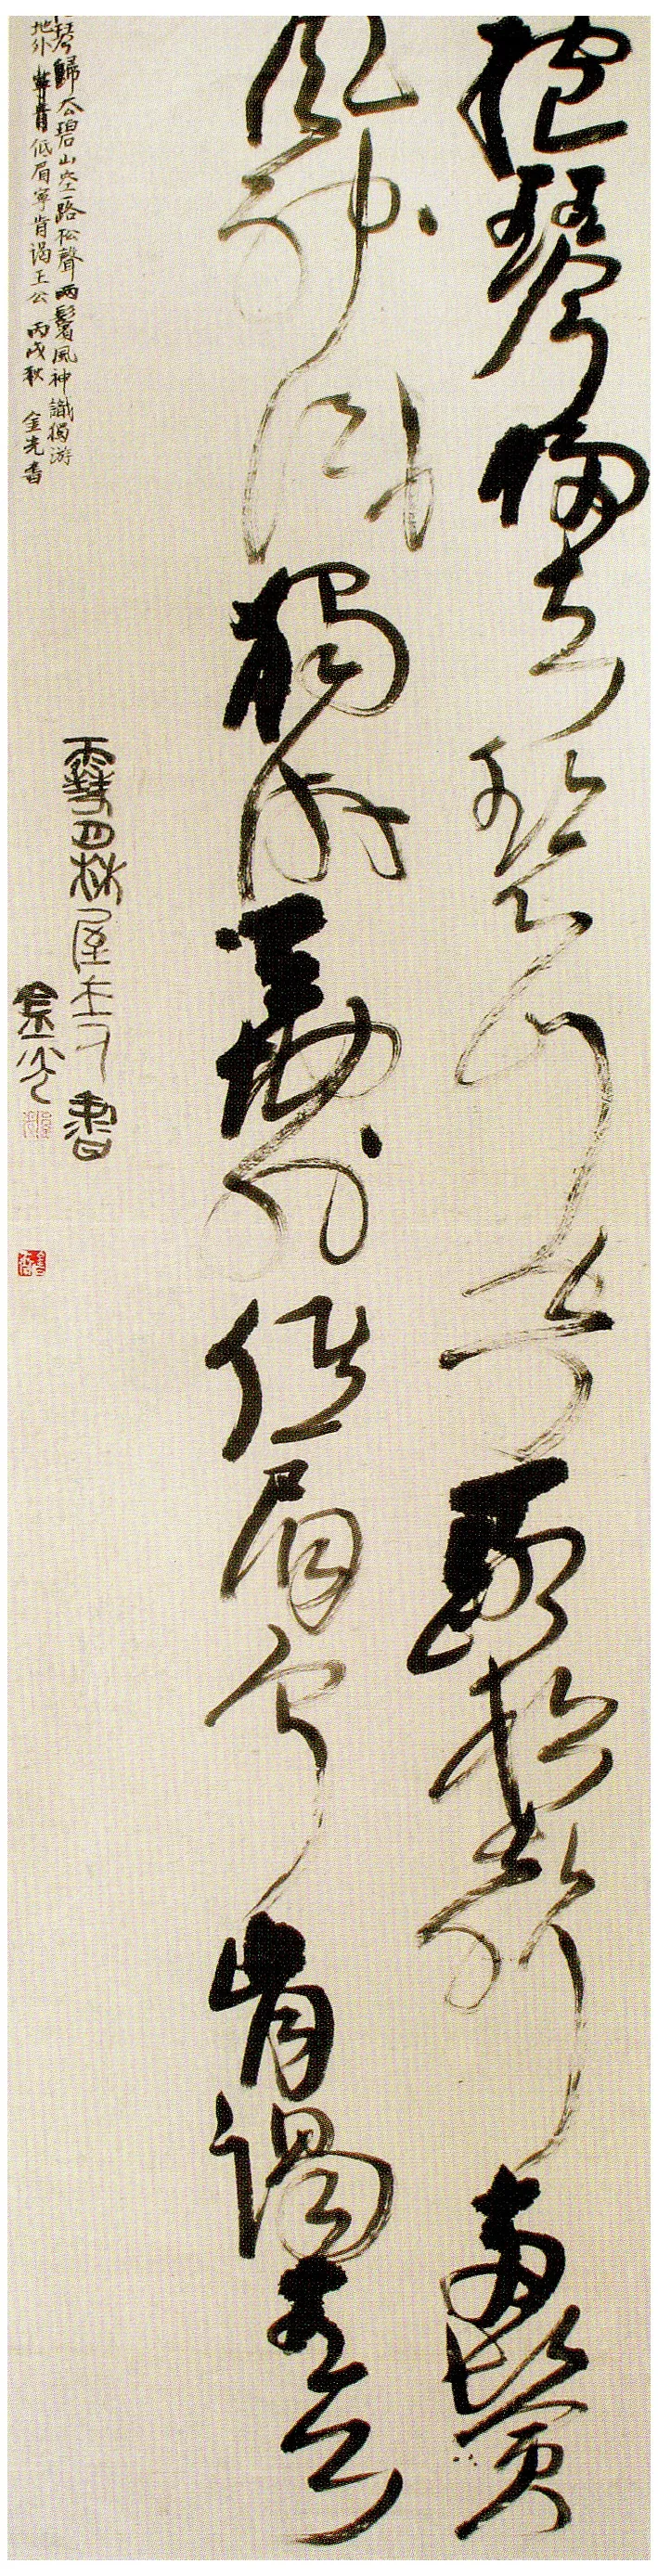 抱琴歸去碧山空一路松聲兩鬢
風神識獨游天地外低眉寧肯謁王公
琴歸去碧山空一路松聲兩鬢風神識獨游
地外寧肯低眉寧肯謁王公 丙戌秋 金光書
林屋主又書
金光